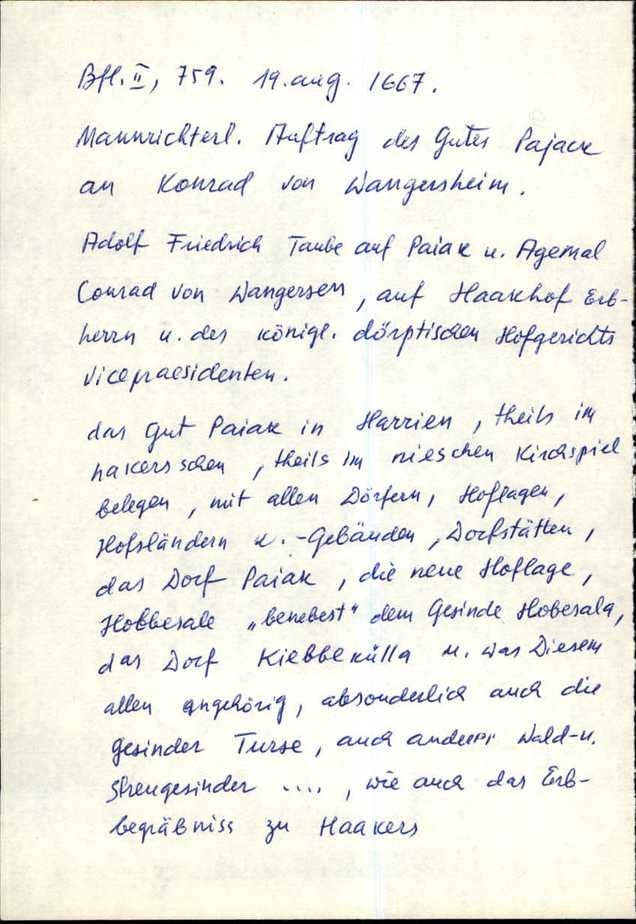 Bfl. II, 759. 19. aug. 1667.
Mannrichterl. Auftrag des Gutes Pajack
an Konrad von Wangersheim.
Adolf Friedrich Taube auf Paiak u. Agemal
Conrad von Wangersen, auf Haakhof Erb-
herrn u. des königl. dörptischen Hofgerichts
vicepraesidenten.
das Gut Paiak in Harrien, theils im
hakersschen, theils im nieschen Kirchspiel
belegen, mit allen Dörfern, Hoflagen,
Hofsländern u. -Gebäuden, Dorfstätten,
das Dorf Paiak, die neue Hoflage,
Hobbesale „benebest" dem Gesinde Hobesala,
das Dorf Kiebbekülla u. was Diesem
allen angehörig, absonderlich auch die
Gesinder Turse, auch andere Wald-u.
Streugesinder ...., wie auch das Erb-
begräbniss zu Haakers